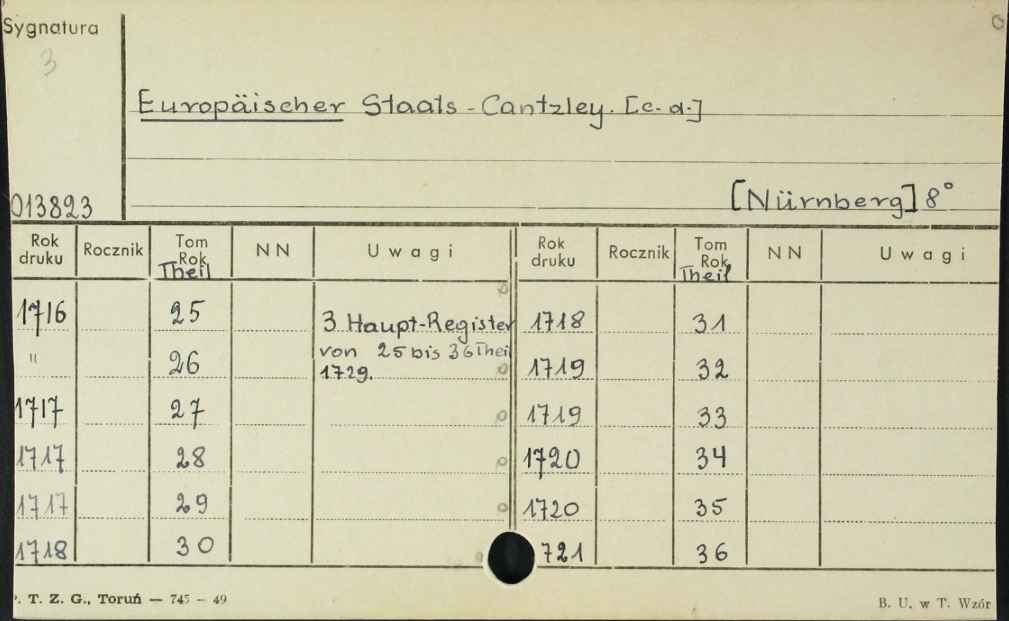 Sygnatura
3
Europäischer Staats-Cantzley. [c. d.]
013823
[Nürnberg] 8°
Rok druku Rocznik Tom Rok Theil NN Uwagi Rok druku Rocznik Tom Rok Theil NN Uwagi
1716 25 3 Haupt-Register 1718 31
von 25 bis 36 Theil
" 26 1719 32
1729.
1717 27 1719 33
1717 28 1720 34
1717 29 1720 35
1718 30 721 36
. T. Z. G., Toruń — 745 — 49
B. U. w T. Wzór